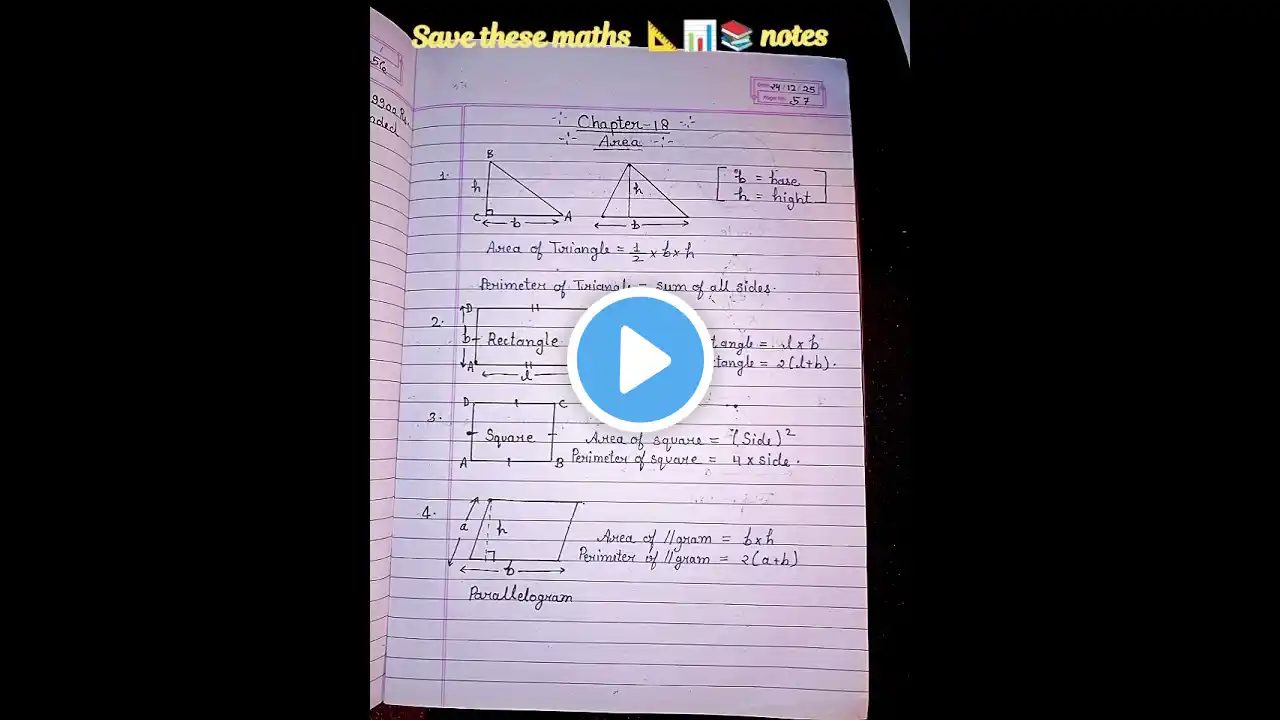 Save these maths 📐📊📚 notes
24/12/25
Page No. 57
56
Chapter-18
Area
1.
B
h
C
b
A
h
b
b = base
h = hight
Area of Triangle = 1/2 × b × h
Perimeter of Triangle = sum of all sides.
2.
D
b
Rectangle
A
l
tangle = l × b
ctangle = 2(l+b).
3.
D
C
Square
A
B
Area of square = (Side)²
Perimeter of square = 4 × side.
4.
a
h
b
Area of //gram = b×h
Perimeter of //gram = 2(a+b)
Parallelogram